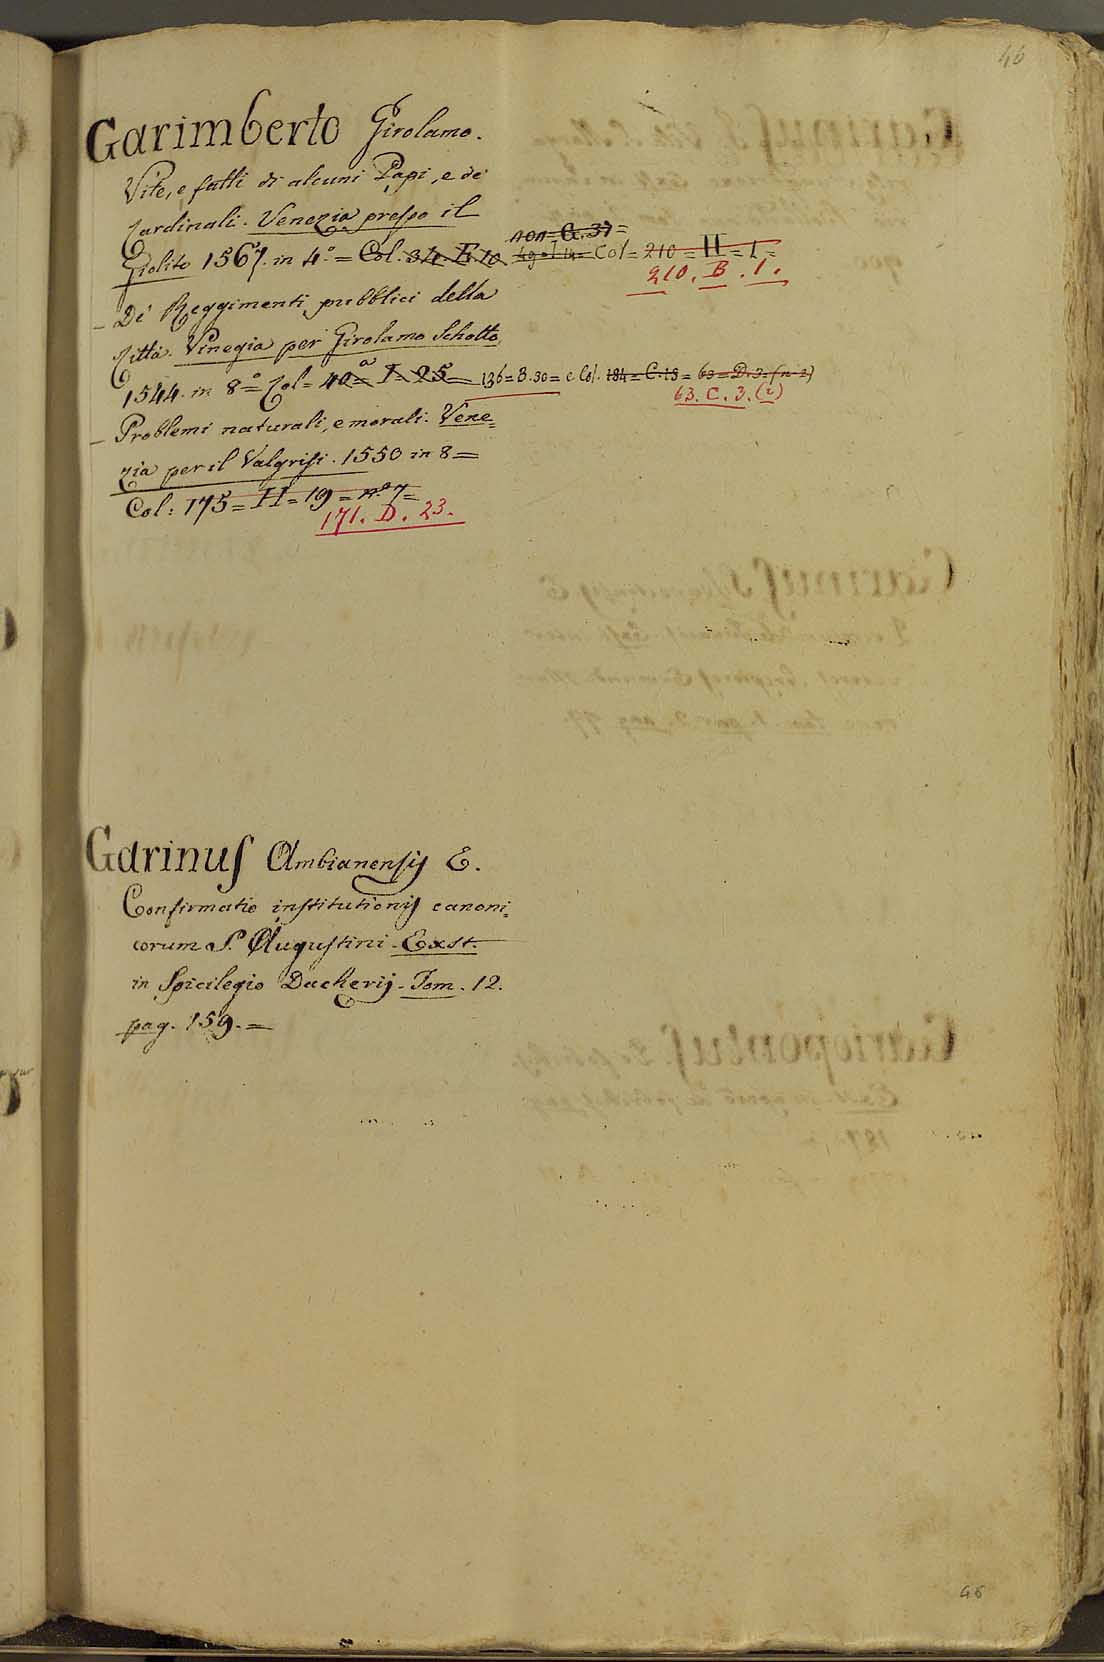 46
Garimberto Girolamo.
Vite, e fatti di alcuni Papi, e de'
Cardinali. Venezia presso il
Giolito 1567. in 4.° = Col. 34 E 10 Col = 210 = II = I =
210. B. 1.
– De' Reggimenti pubblici della
Città. Vinegia per Girolamo Schotto
1544. in 8° = Col = 40 = I = 25 = 136 = B. 30 = e Col. 184 = C. 18 = 63 = D. 3. (n. 2)
63. C. 3. (2)
– Problemi naturali, e morali. Vene=
zia per il Valgrisi. 1550 in 8 =
Col: 175 = H = 19 = n.° 7 =
171. D. 23.
Garinus Ambianensis E.
Confirmatio institutionis canoni=
corum S. Augustini. Exst.
in Spicilegio Dacherij. Tom. 12.
pag. 159. =
46